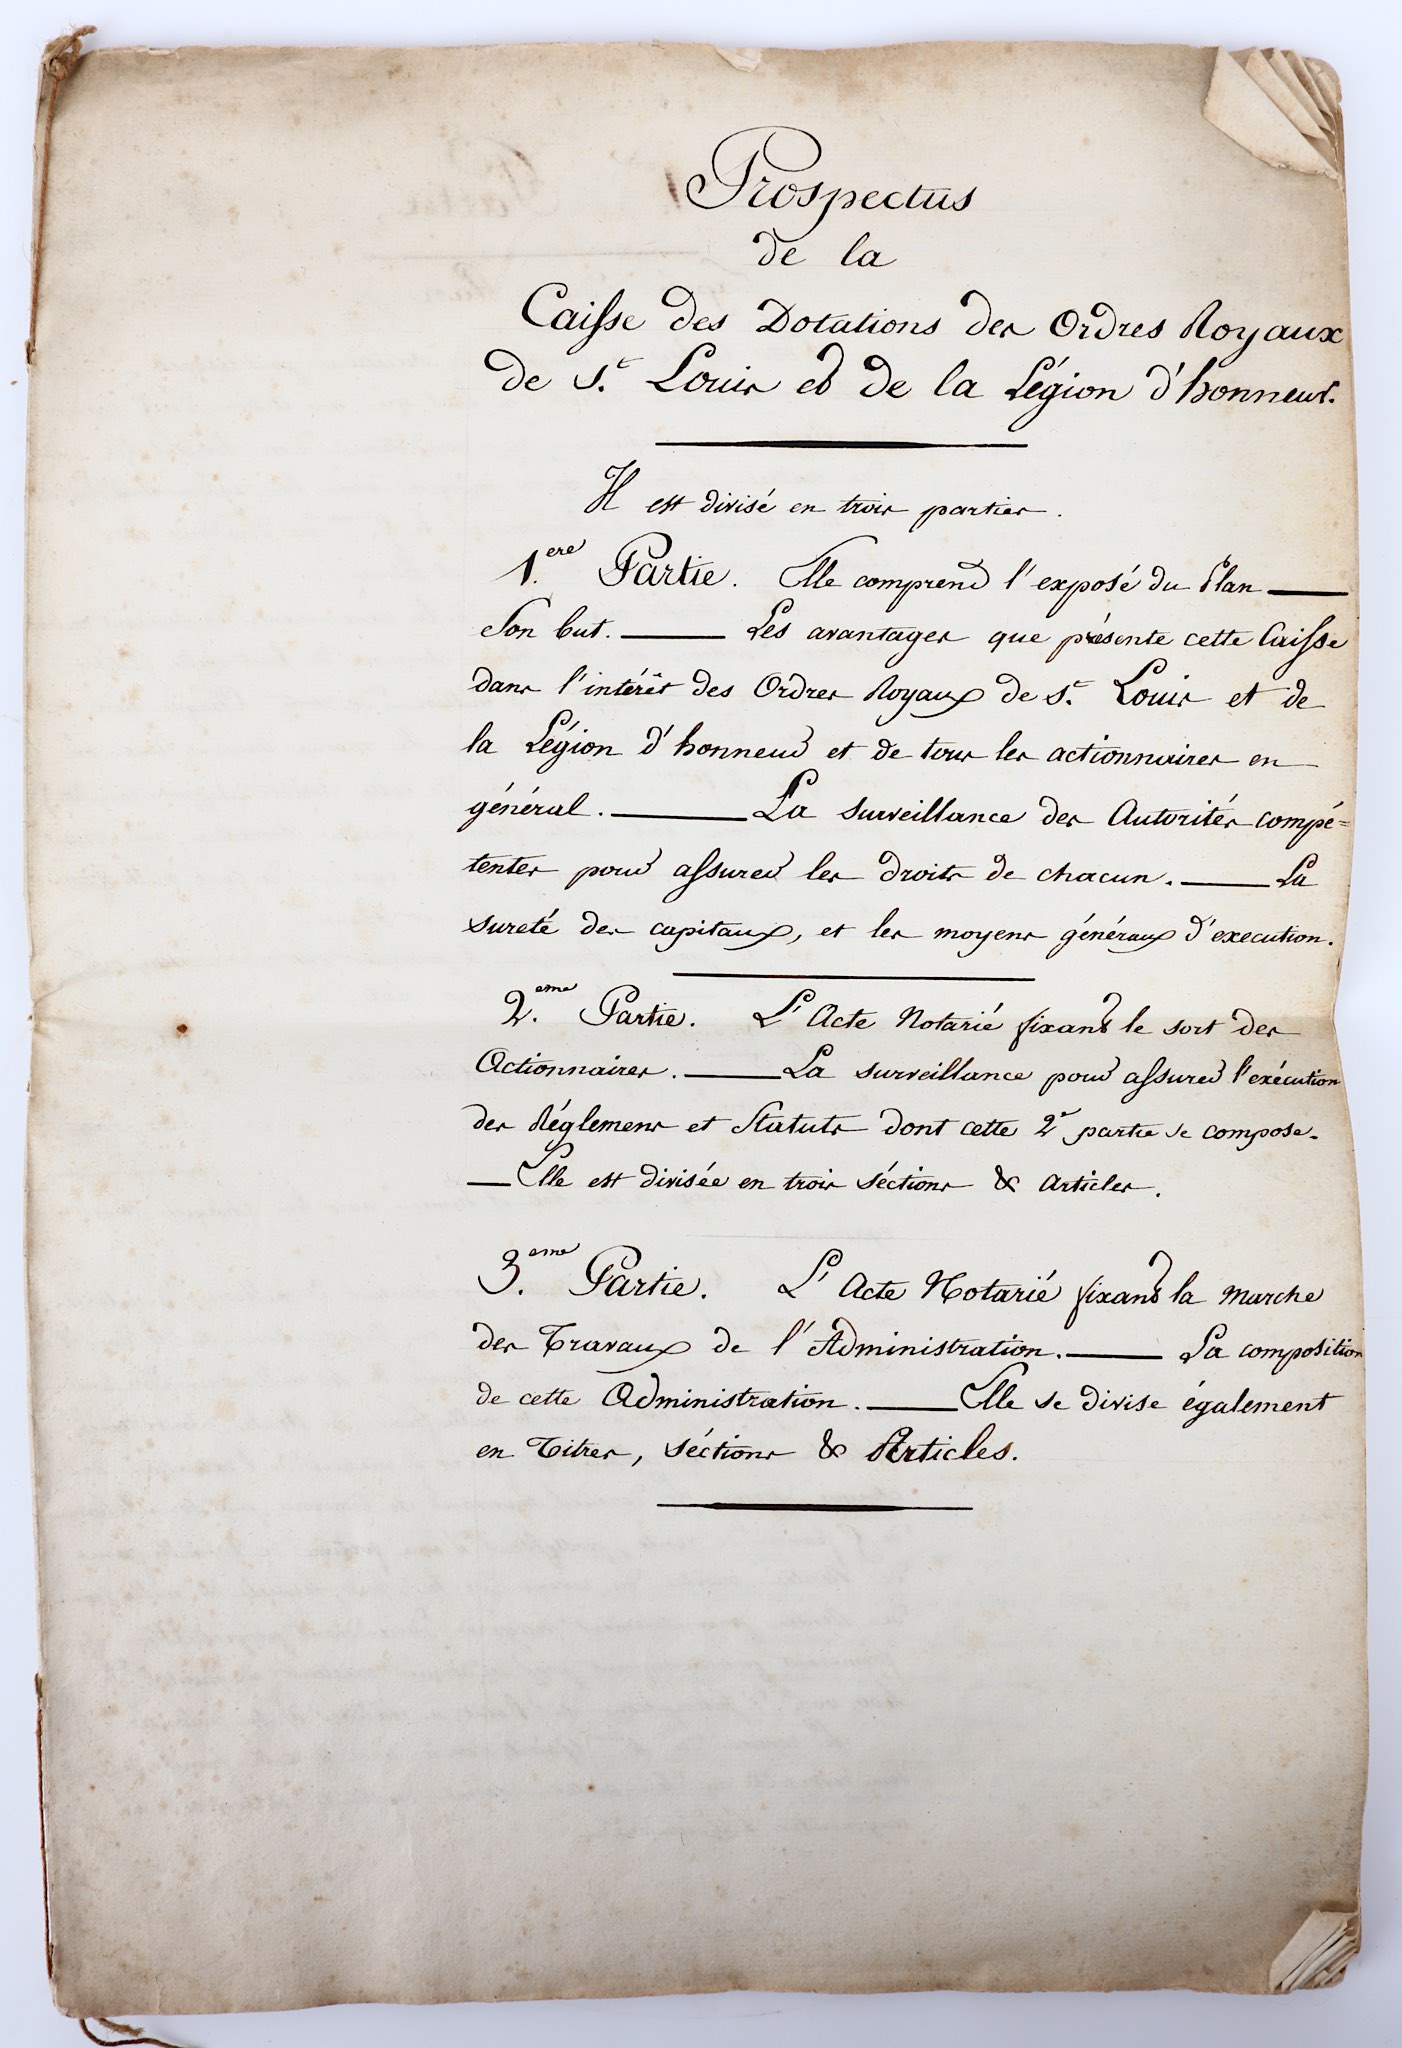 Prospectus
de la
Caisse des Dotations des Ordres Royaux
de St. Louis et de la Légion d'honneur.
Il est divisé en trois parties.
1.ere Partie. Elle comprend l'exposé du Plan —
Son but. — Les avantages que présente cette Caisse
dans l'intérêt des Ordres Royaux de St. Louis et de
la Légion d'honneur et de tous les actionnaires en
général. — La surveillance des Autorités compé=
tentes pour assurer les droits de chacun. — La
sureté des capitaux, et les moyens généraux d'execution.
2.eme Partie. L'Acte Notarié fixant le sort des
Actionnaires. — La surveillance pour assurer l'exécution
des Réglemens et Statuts dont cette 2e partie se compose.
— Elle est divisée en trois séctions & articles.
3.eme Partie. L'Acte Notarié fixant la marche
des Travaux de l'Administration. — La composition
de cette Administration. — Elle se divise également
en Titres, séctions & Articles.